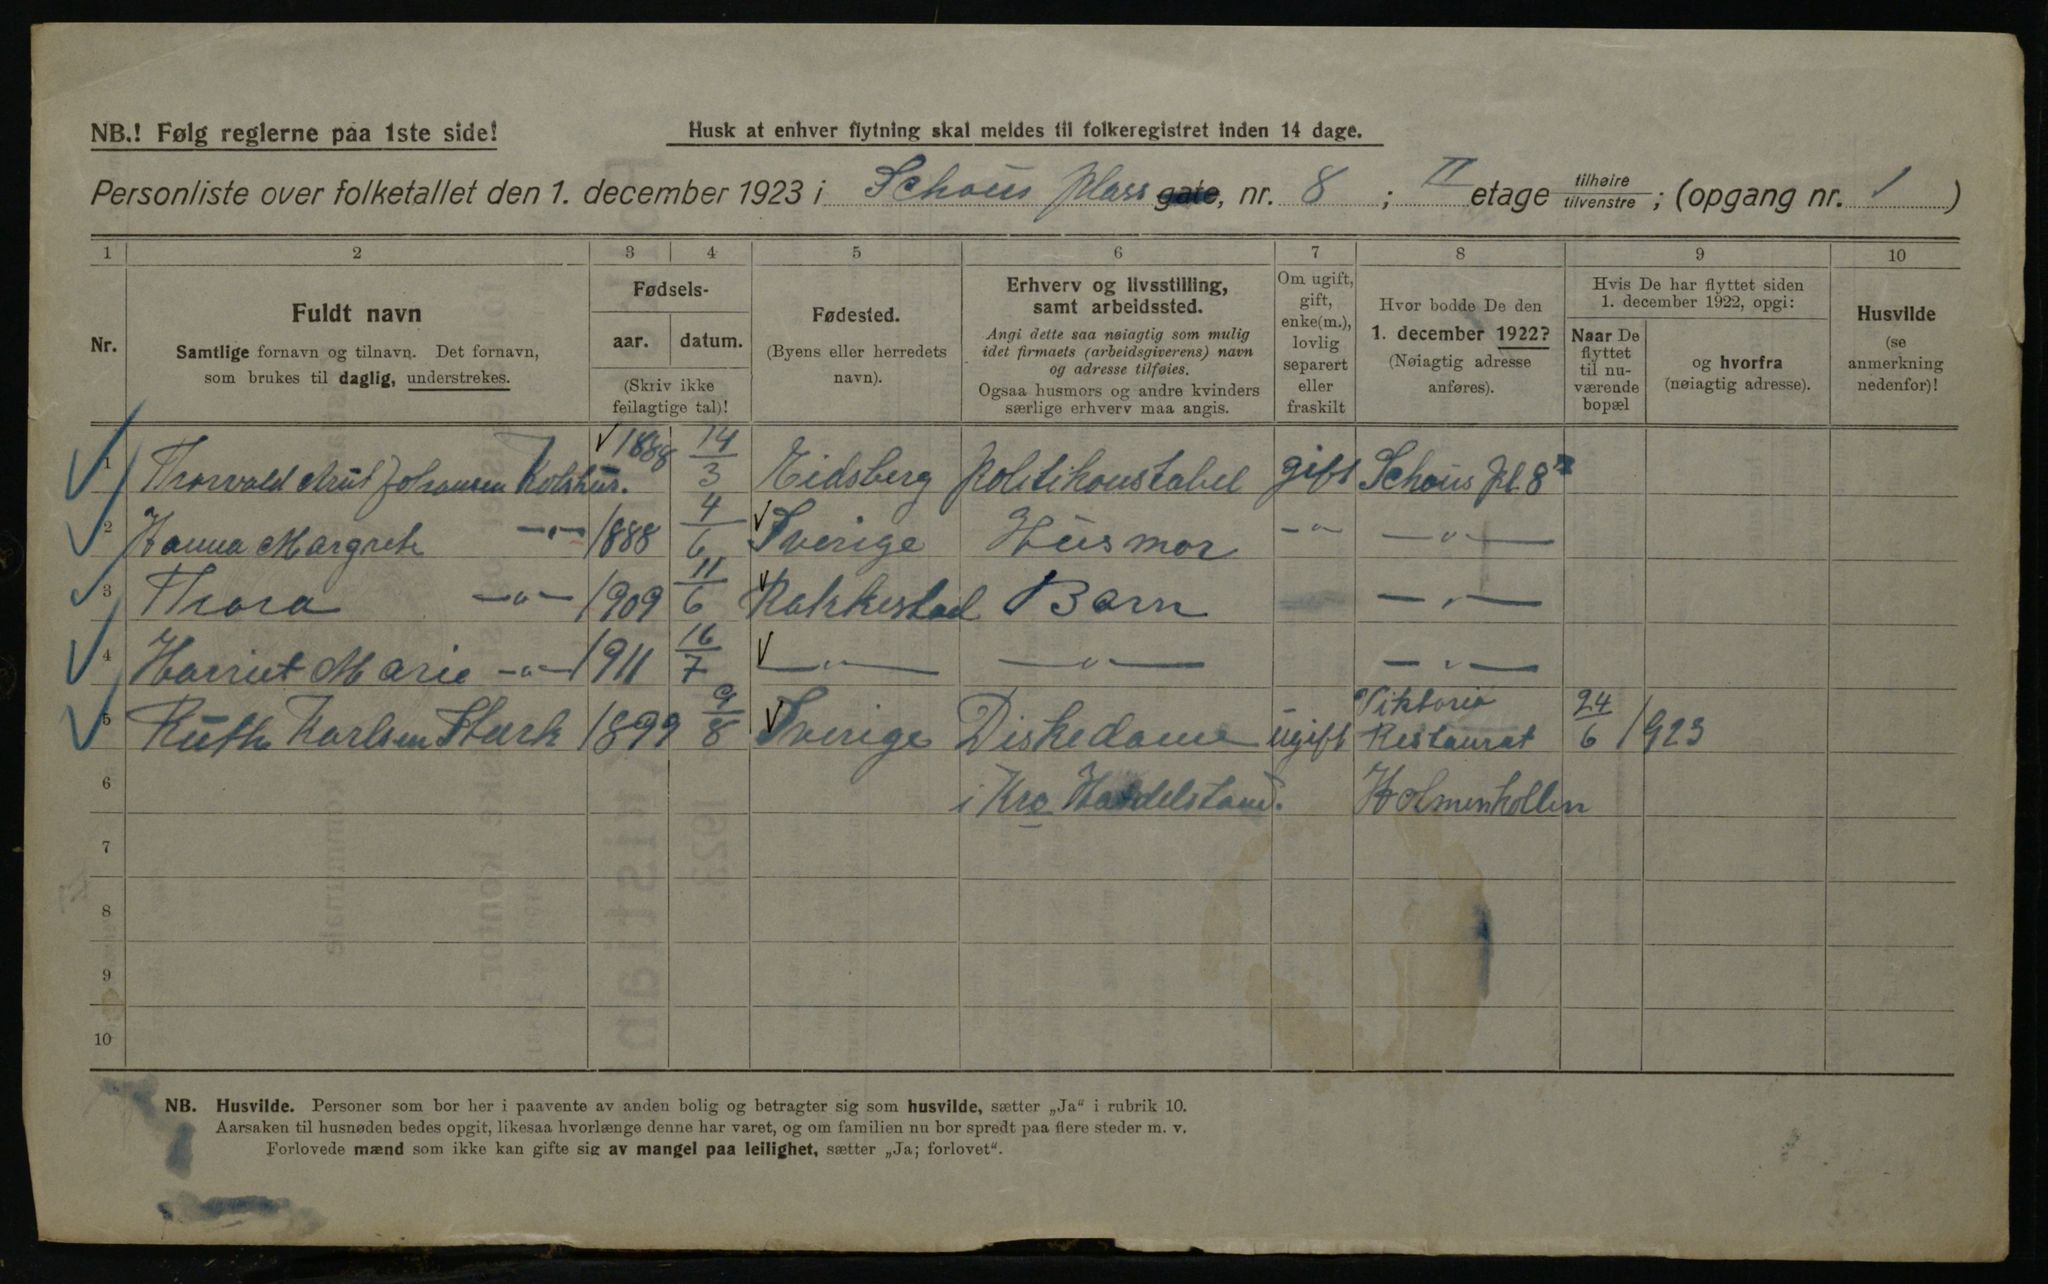 NB.! Følg reglerne paa 1ste side!
Husk at enhver flytning skal meldes til folkeregistret inden 14 dage.
Personliste over folketallet den 1. december 1923 i Schous plass gate, nr. 8 ; II etage tilhøire tilvenstre ; (opgang nr. 1 )
1 2 3 4 5 6 7 8 9 10
Nr.
Fuldt navn
Samtlige fornavn og tilnavn. Det fornavn,
som brukes til daglig, understrekes.
Fødsels-
aar. datum.
(Skriv ikke
feilagtige tal)!
Fødested.
(Byens eller herredets
navn).
Erhverv og livsstilling,
samt arbeidssted.
Angi dette saa nøiagtig som mulig
idet firmaets (arbeidsgiverens) navn
og adresse tilføies.
Ogsaa husmors og andre kvinders
særlige erhverv maa angis.
Om ugift,
gift,
enke(m.),
lovlig
separert
eller
fraskilt
Hvor bodde De den
1. december 1922?
(Nøiagtig adresse
anføres).
Hvis De har flyttet siden
1. december 1922, opgi:
Naar De
flyttet
til nu-
værende
bopæl
og hvorfra
(nøiagtig adresse).
Husvilde
(se
anmerkning
nedenfor)!
1 Thorvald Johansen Kolshus. 1888 14/3 Eidsberg Politikonstabel gift Schous pl. 8 II
2 Hanna Margrete —"— 1888 4/6 Sverige Husmor —"— —"—
3 Thora —"— 1909 11/6 Rakkestad Barn —"—
4 Harriet Marie —"— 1911 16/7 —"— —"— —"—
5 Ruth Karlsen Stark 1899 9/8 Sverige Diskedame ugift Viktoria Restaurat 24/6 1923
6 i Kra Handelstand. Holmenkollen
7
8
9
10
NB. Husvilde. Personer som bor her i paavente av anden bolig og betragter sig som husvilde, sætter „Ja“ i rubrik 10.
Aarsaken til husnøden bedes opgit, likesaa hvorlænge denne har varet, og om familien nu bor spredt paa flere steder m. v.
Forlovede mænd som ikke kan gifte sig av mangel paa leilighet, sætter „Ja; forlovet“.